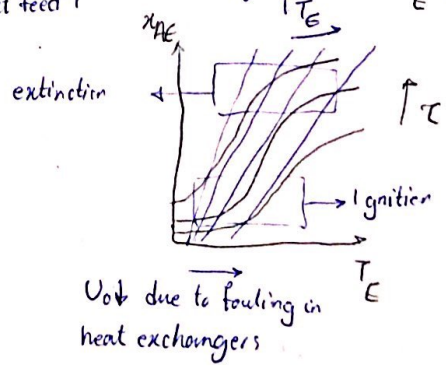 t feed
↑T_E
E
x_AE
extinction
↑ τ
Ignition
T_E
U₀↓ due to fouling in
heat exchangers